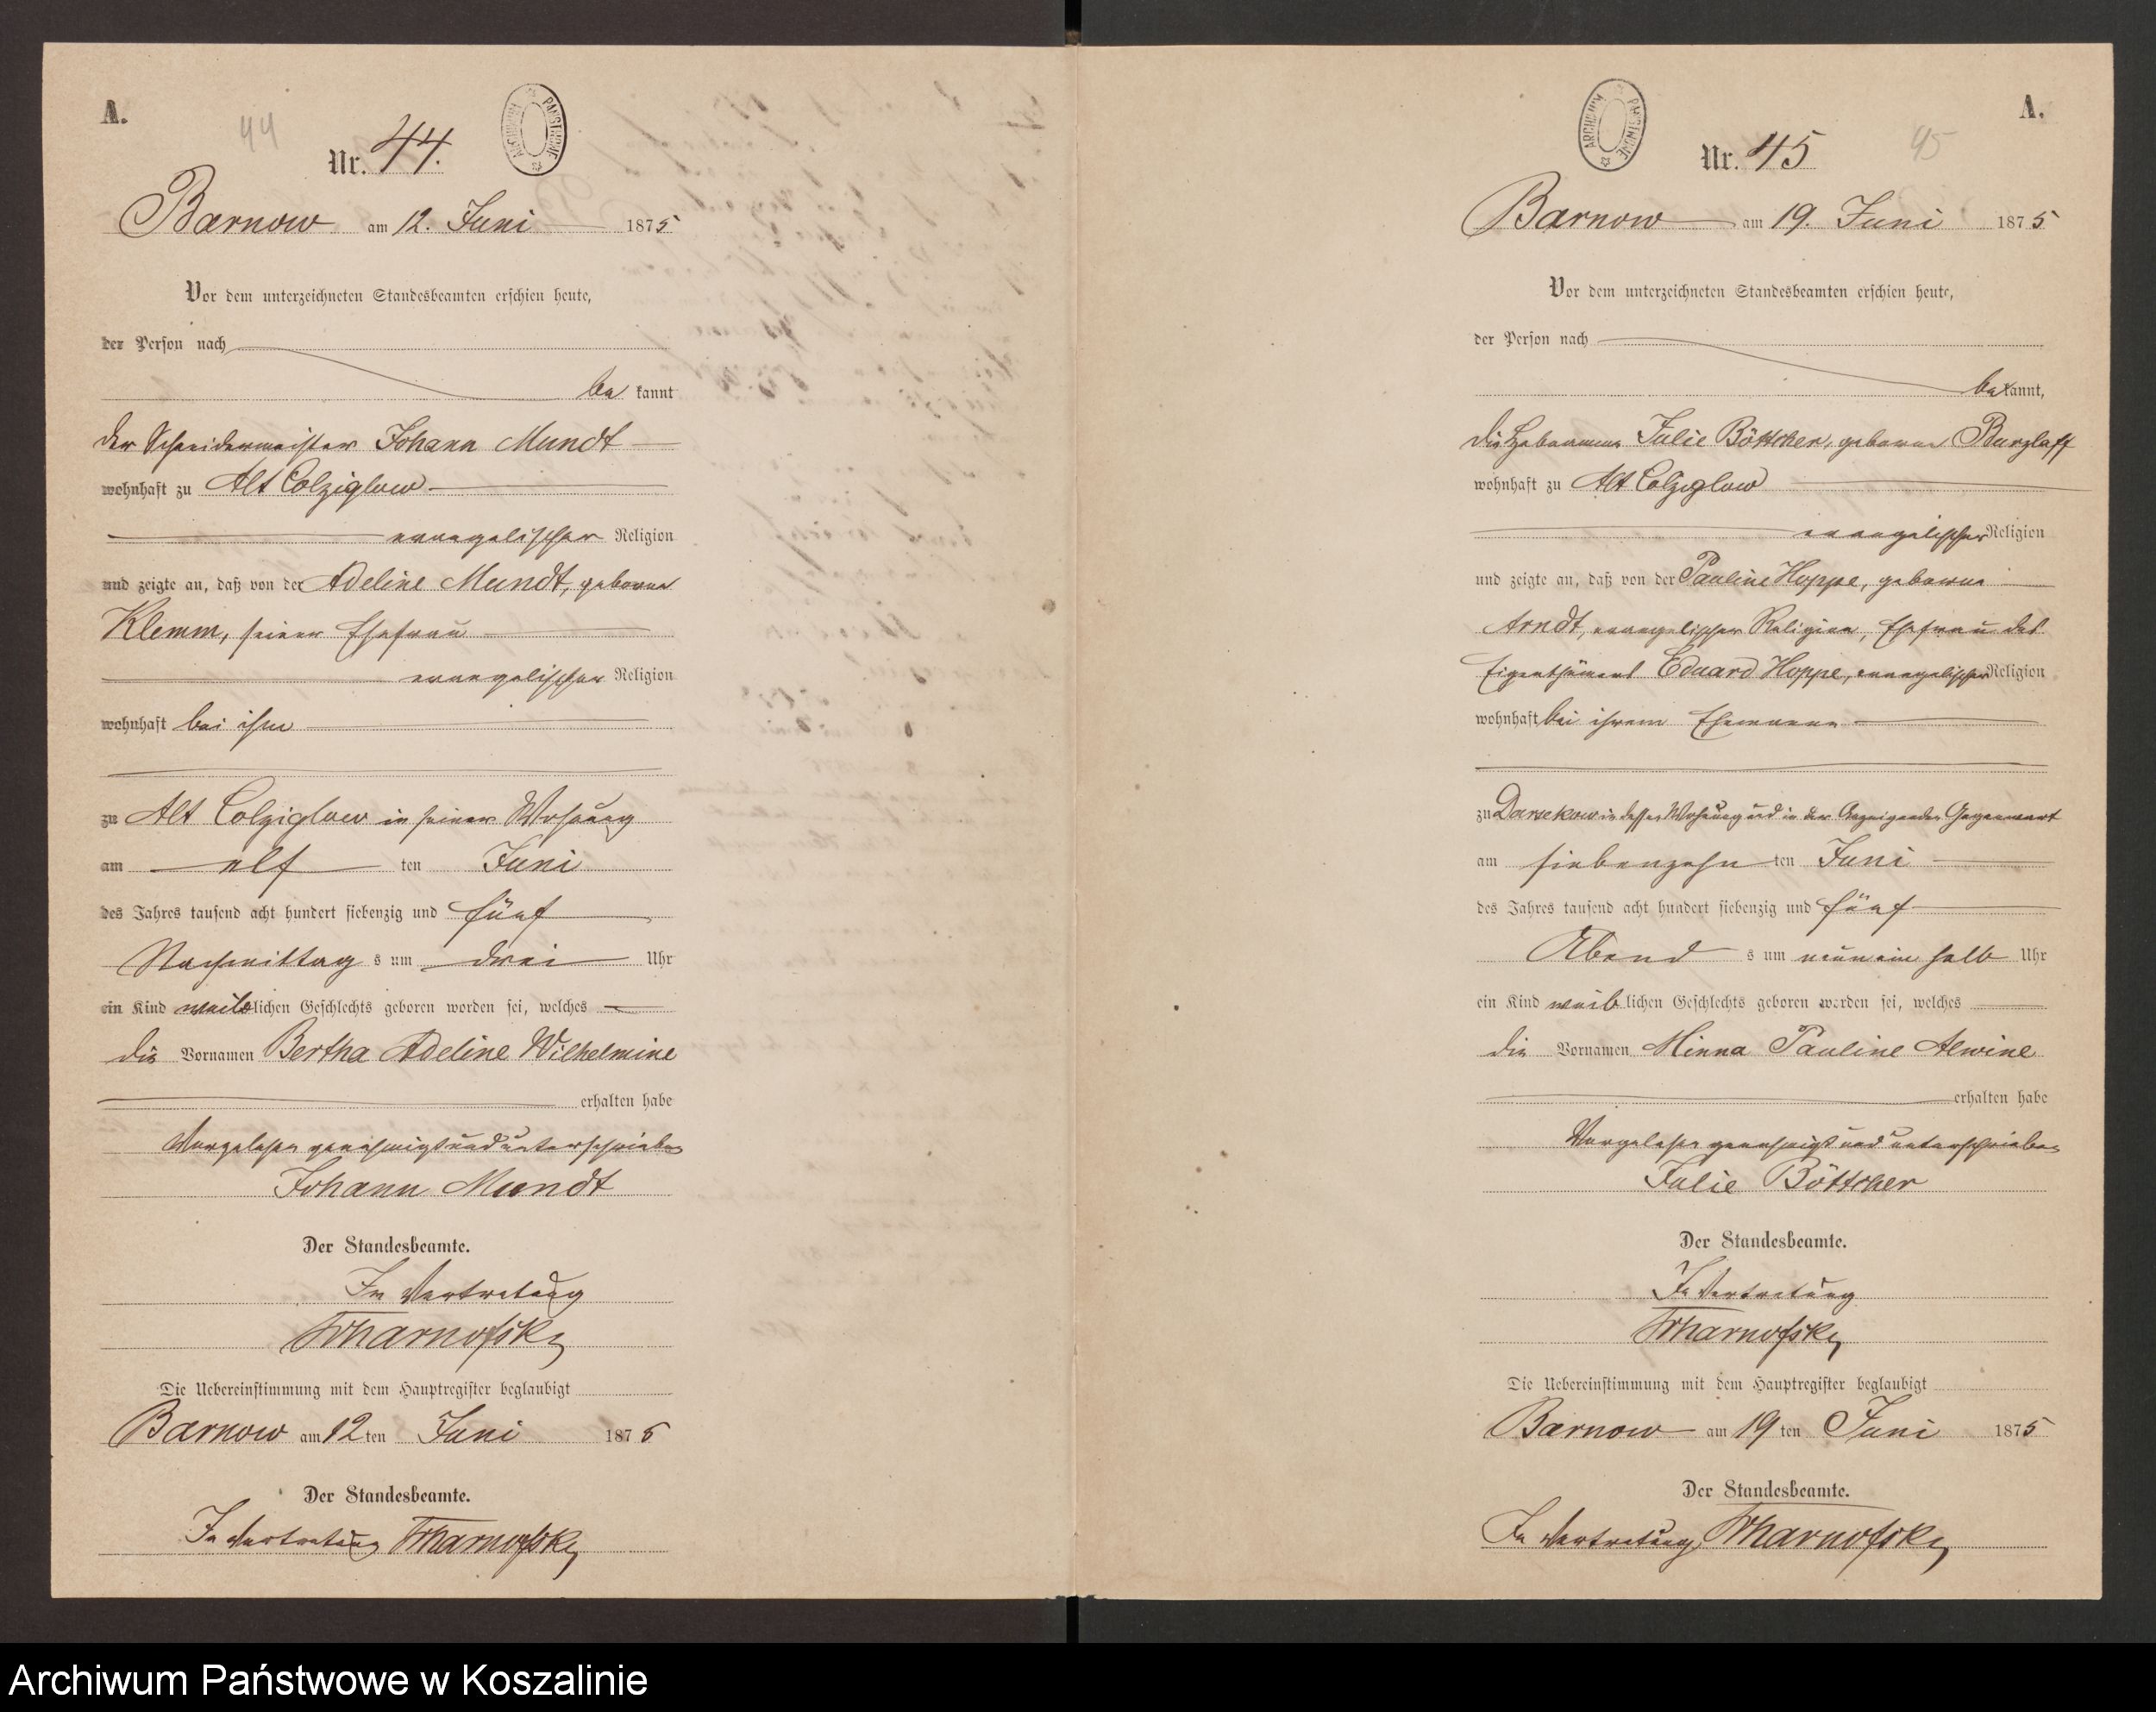 A.
44
Nr. 44.
ARCHIWUM PAŃSTWOWE
Barnow am 12. Juni 1875
Vor dem unterzeichneten Standesbeamten erschien heute,
der Person nach
be kannt
der Schneidermeister Johann Mundt
wohnhaft zu Alt Colziglow
evangelischer Religion
und zeigte an, daß von der Adeline Mundt, geborne
Klemm, seiner Ehefrau
evangelischer Religion
wohnhaft bei ihm
zu Alt Colziglow in seiner Wohnung
am elf ten Juni
des Jahres tausend acht hundert siebenzig und fünf
Nachmittag s um drei Uhr
ein Kind weiblichen Geschlechts geboren worden sei, welches
die Vornamen Bertha Adeline Wilhelmine
erhalten habe
Vorgelesen genehmigt und unterschrieben
Johann Mundt
Der Standesbeamte.
In Vertretung
Die Uebereinstimmung mit dem Hauptregister beglaubigt
Barnow am 12 ten Juni 1875
Der Standesbeamte.
In Vertretung
A.
45
Nr. 45
ARCHIWUM PAŃSTWOWE
Barnow am 19. Juni 1875
Vor dem unterzeichneten Standesbeamten erschien heute,
der Person nach
bekannt,
die Hebamme Julie Böttcher, geborne Burzlaff
wohnhaft zu Alt Colziglow
evangelischer Religion
und zeigte an, daß von der Pauline Hoppe, geborne
Arndt, evangelischer Religion, Ehefrau des
Eigenthümers Eduard Hoppe, evangelischer Religion
wohnhaft bei ihrem Ehemanne
zu Darsekow in dessen Wohnung und in der Anzeigenden Gegenwart
am siebenzehn ten Juni
des Jahres tausend acht hundert siebenzig und fünf
Abend s um neun ein halb Uhr
ein Kind weiblichen Geschlechts geboren worden sei, welches
die Vornamen Minna Pauline Alwine
erhalten habe
Vorgelesen genehmigt und unterschrieben
Julie Böttcher
Der Standesbeamte.
In Vertretung
Die Uebereinstimmung mit dem Hauptregister beglaubigt
Barnow am 19 ten Juni 1875
Der Standesbeamte.
In Vertretung
Archiwum Państwowe w Koszalinie